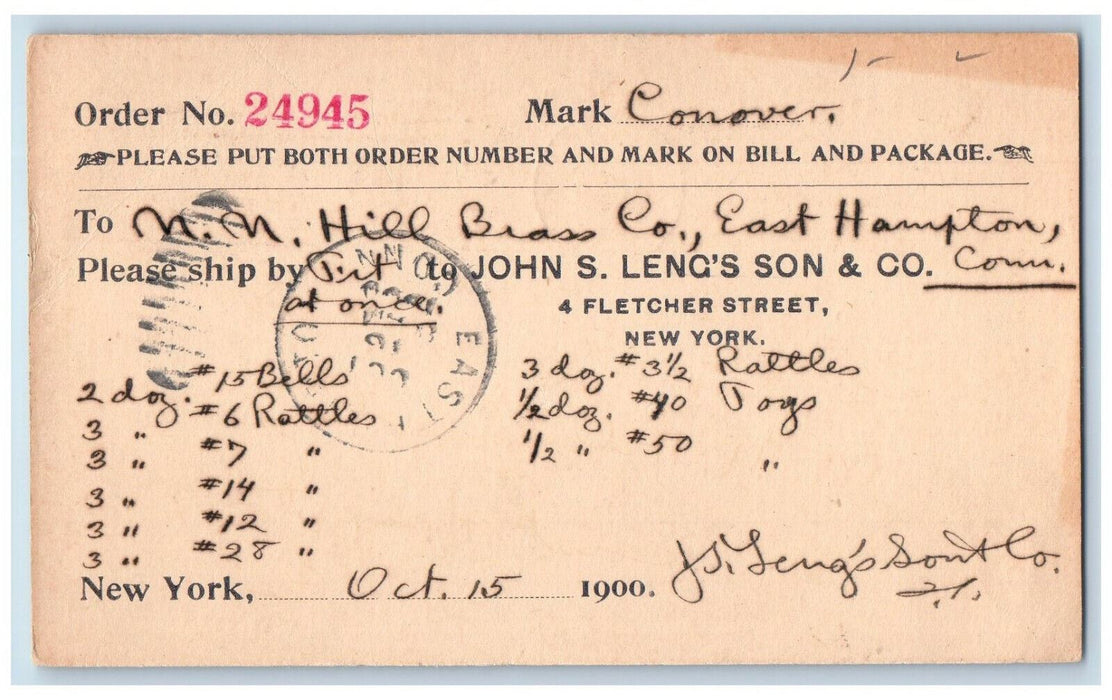 Order No. 24945 Mark Conover.
PLEASE PUT BOTH ORDER NUMBER AND MARK ON BILL AND PACKAGE.
To N. N. Hill Brass Co., East Hampton,
Please ship by to JOHN S. LENG'S SON & CO. Conn.
at once.
4 FLETCHER STREET,
NEW YORK.
2 doz. #15 Bells
3 " #6 Rattles
3 " #7 "
3 " #14 "
3 " #12 "
3 " #28 "
3 doz. #3½ Rattles
½ doz. #40 Toys
½ " #50 "
New York, Oct. 15 1900.
J. S. Leng's Son & Co.
EAST
CONN